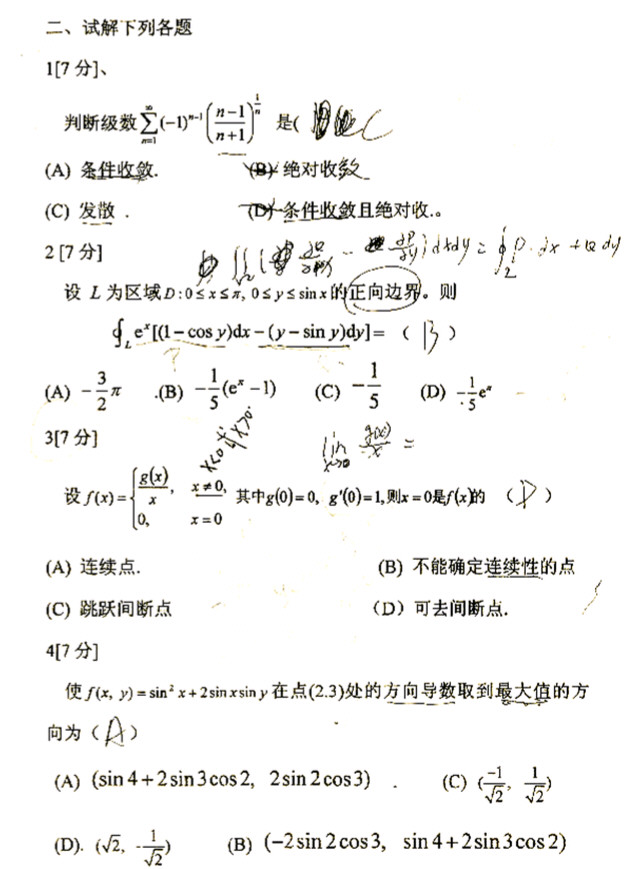 二、试解下列各题
1[7 分]、
判断级数 \sum_{n=1}^{\infty}(-1)^{n-1}\left(\frac{n-1}{n+1}\right)^{\frac{1}{n}} 是( C
(A) 条件收敛. (B) 绝对收敛
(C) 发散 . (D) 条件收敛且绝对收.。
2 [7 分] \iint ( \frac{\partial Q}{\partial x} - \frac{\partial P}{\partial y} ) dxdy = \oint_L P dx + Q dy
设 L 为区域 D:0≤x≤π, 0≤y≤sin x 的正向边界。则
\oint_L e^x[(1-cos y)dx-(y-sin y)dy]= ( B )
(A) -\frac{3}{2}π .(B) -\frac{1}{5}(e^π-1) (C) -\frac{1}{5} (D) -\frac{1}{5}e^π
3[7 分] x<0 x>0 \lim_{x→0} \frac{g(x)}{x} =
设 f(x)=\begin{cases}\frac{g(x)}{x}, & x≠0, \\ 0, & x=0\end{cases} 其中g(0)=0, g'(0)=1,则x=0是f(x)的 ( D )
(A) 连续点. (B) 不能确定连续性的点
(C) 跳跃间断点 (D) 可去间断点.
4[7 分]
使 f(x, y)=sin² x+2sin x sin y 在点(2.3)处的方向导数取到最大值的方
向为 ( A )
(A) (sin 4+2sin 3cos 2, 2sin 2cos 3) . (C) (\frac{-1}{\sqrt{2}}, \frac{1}{\sqrt{2}})
(D). (\sqrt{2}, -\frac{1}{\sqrt{2}}) (B) (-2sin 2cos 3, sin 4+2sin 3cos 2)